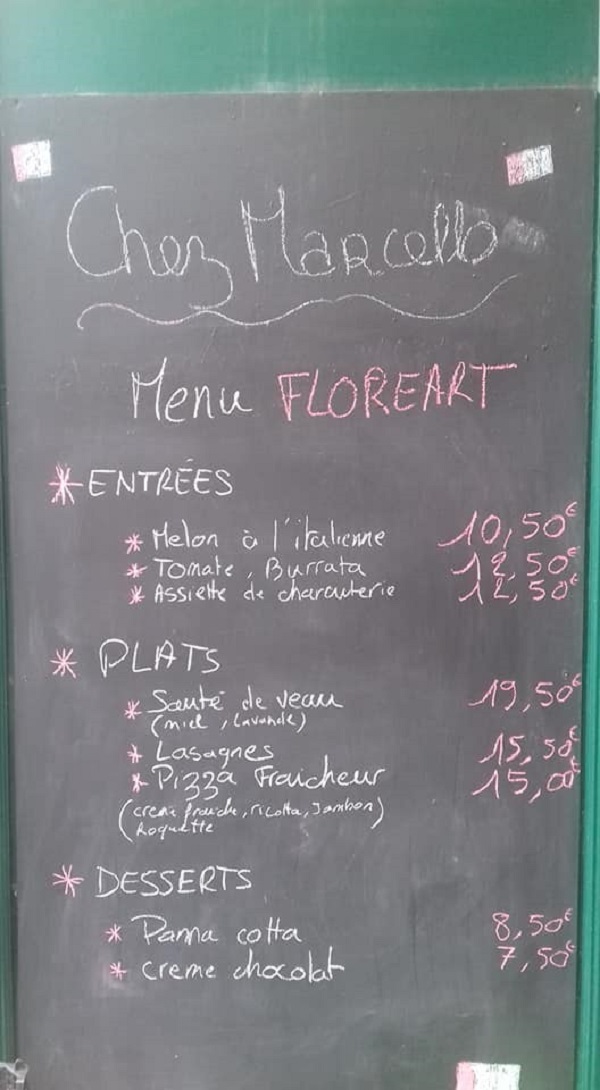 Chez Marcello
Menu FLOREART
* ENTRÉES
* Melon à l'italienne 10,50€
* Tomate, Burrata 12,50€
* Assiette de charcuterie 12,50€
* PLATS
* Sauté de veau 19,50€
(miel, lavande)
* Lasagnes 15,50€
* Pizza Fraicheur 15,00€
(creme fraiche, ricotta, Jambon)
Roquette
* DESSERTS
* Panna cotta 8,50€
* creme chocolat 7,50€